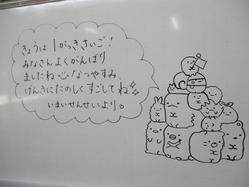 きょうは1がっきさいご!
みなさんよくがんばり
ましたね♡なつやすみ、
げんきにたのしくすごしてね
いまいせんせいより。